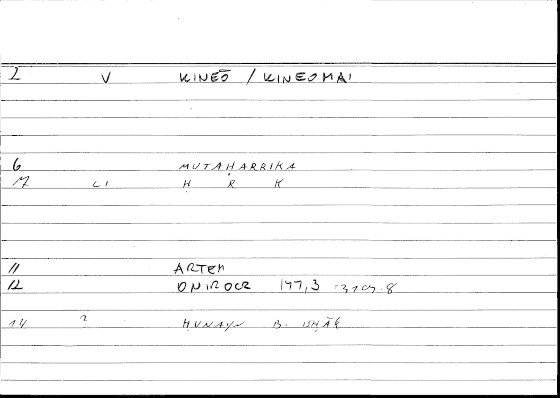 2 V KINEŌ / KINEOMAI
6 MUTAḤARRIKA
7 LI Ḥ R K
11 ARTEM
12 ONIROCR 177,3
14 ? ḤUNAYN B. ISḤĀḲ